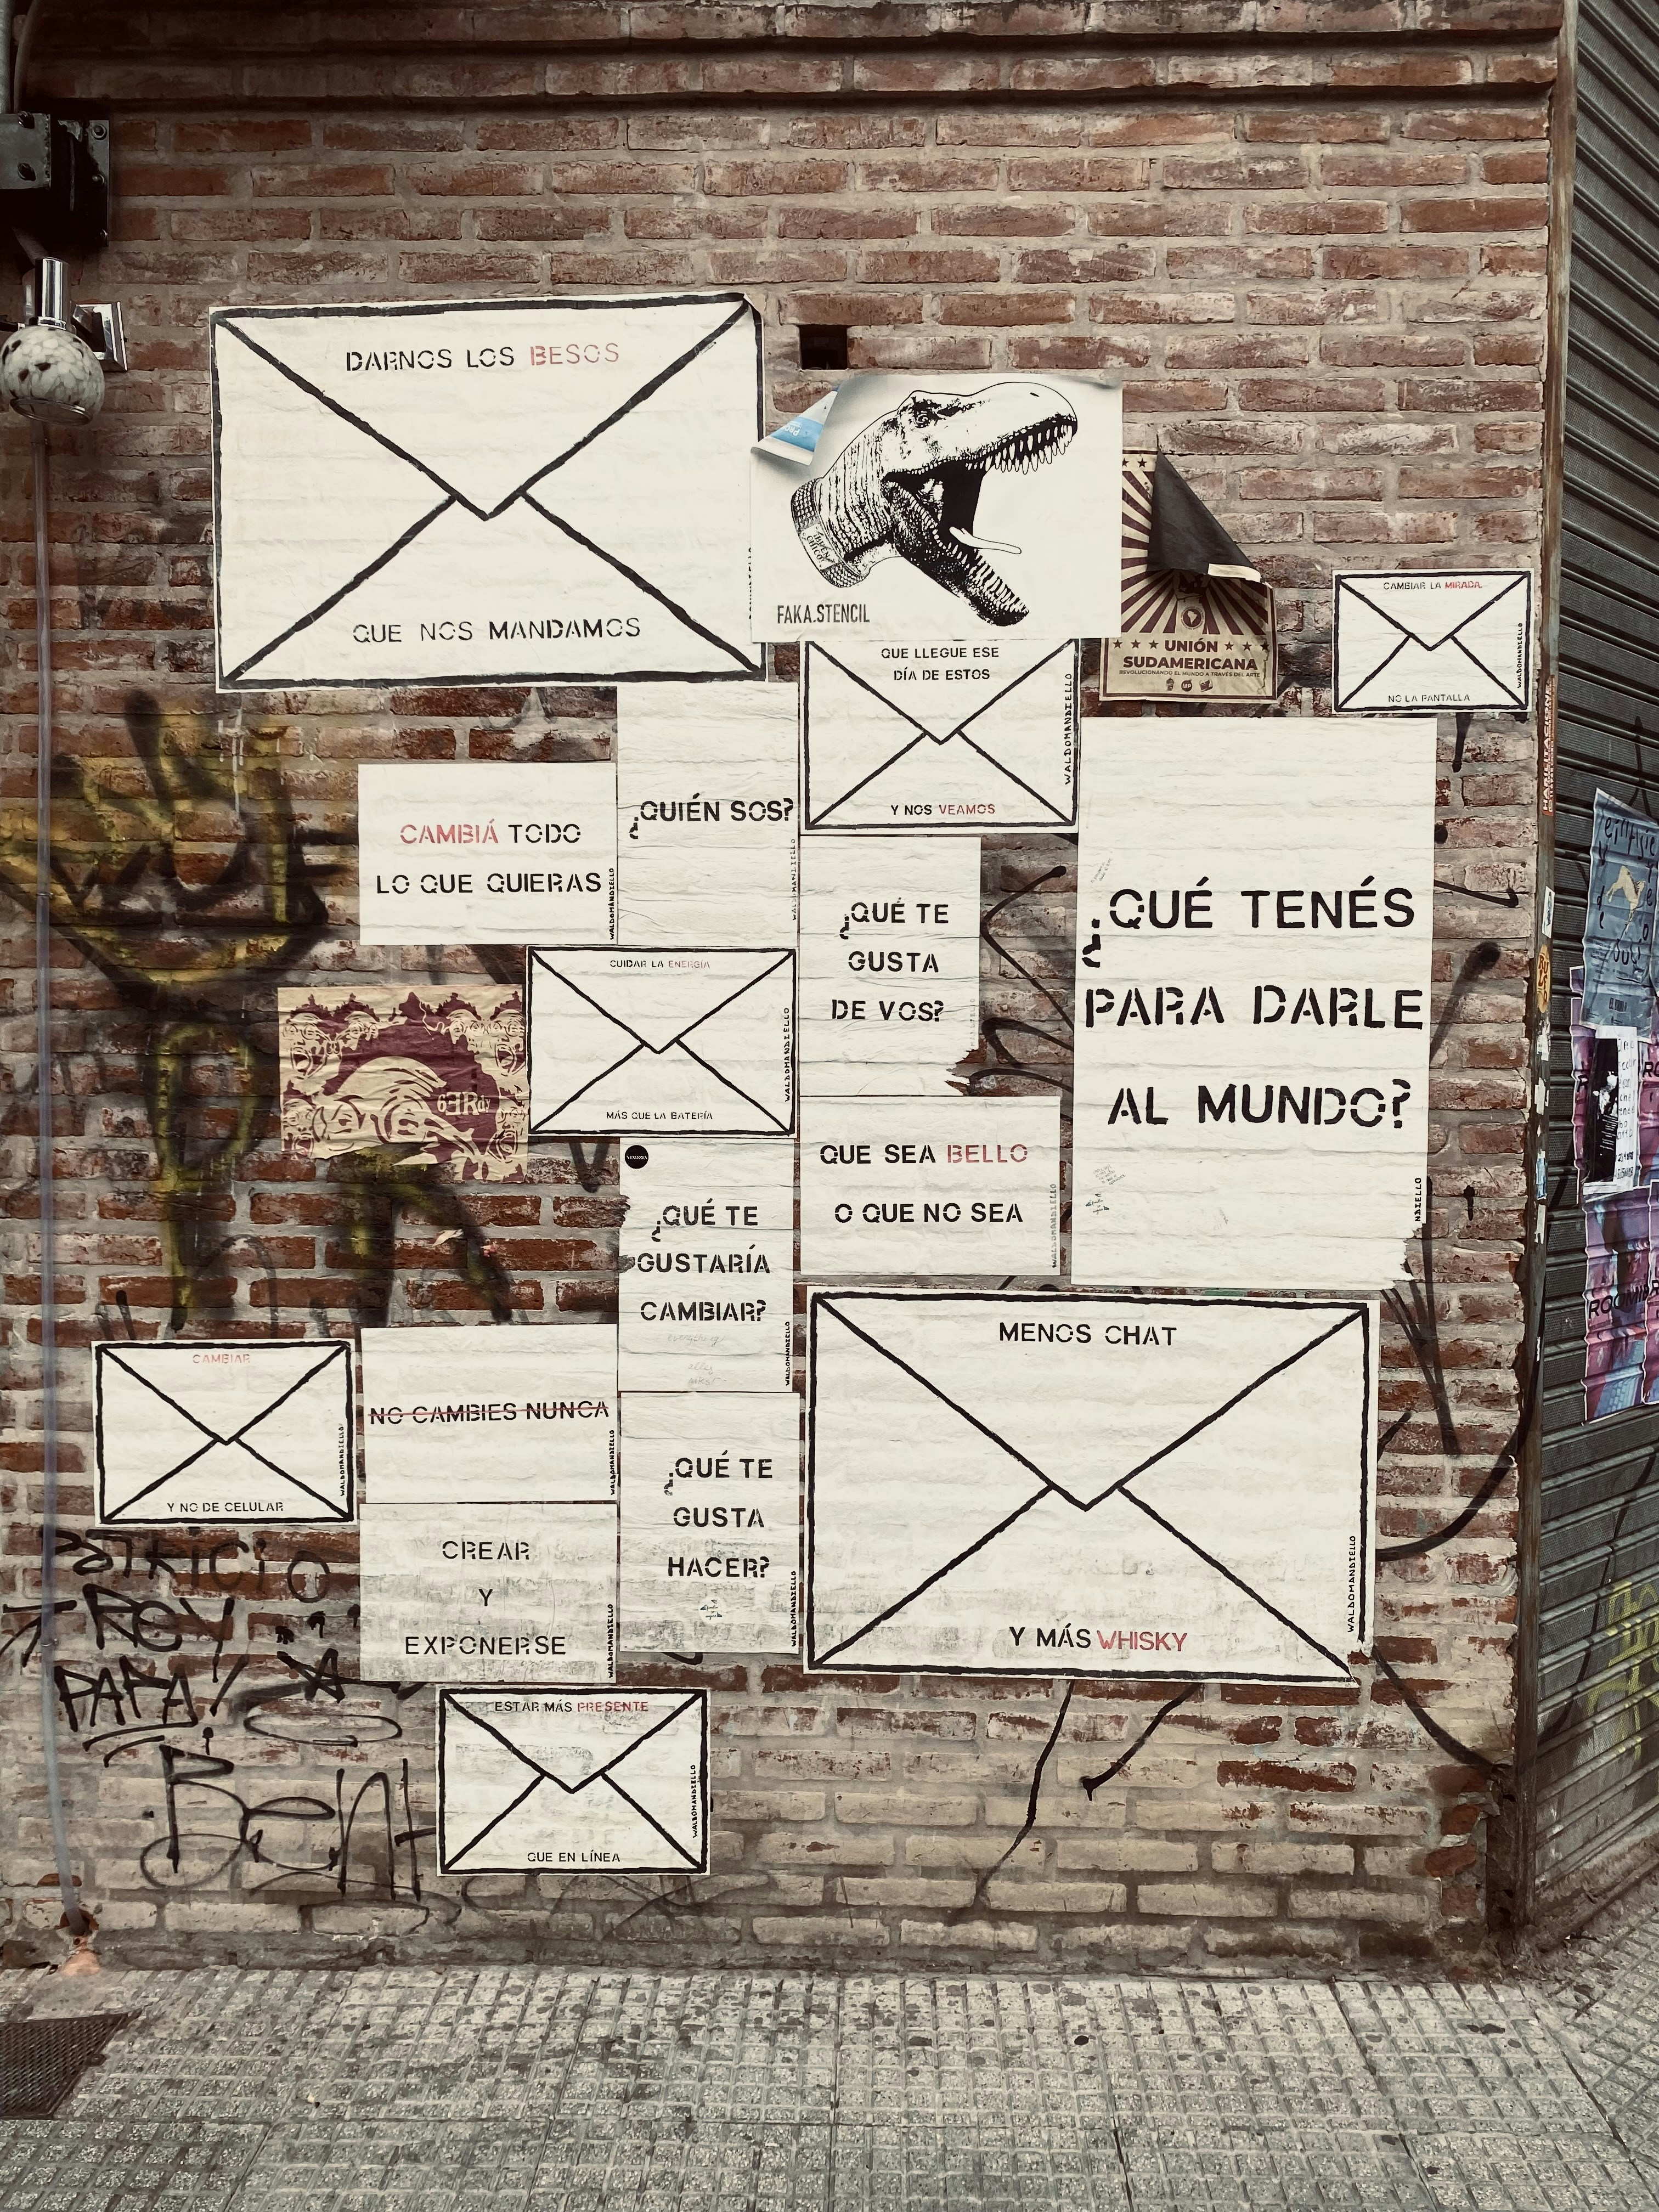 DARNOS LOS BESOS
QUE NOS MANDAMOS
FAKA.STENCIL
UNIÓN
SUDAMERICANA
REVOLUCIONANDO EL MUNDO A TRAVÉS DEL ARTE
CAMBIAR LA MIRADA
NO LA PANTALLA
WALDOMANDIELLO
QUE LLEGUE ESE
DÍA DE ESTOS
Y NOS VEAMOS
WALDOMANDIELLO
CAMBIÁ TODO
LO QUE QUIERAS
WALDOMANDIELLO
¿QUIÉN SOS?
WALDOMANDIELLO
¿QUÉ TE
GUSTA
DE VOS?
¿QUÉ TENÉS
PARA DARLE
AL MUNDO?
NDIELLO
CUIDAR LA ENERGÍA
MÁS QUE LA BATERÍA
WALDOMANDIELLO
QUE SEA BELLO
O QUE NO SEA
WALDOMANDIELLO
¿QUÉ TE
GUSTARÍA
CAMBIAR?
WALDOMANDIELLO
CAMBIAR
Y NO DE CELULAR
WALDOMANDIELLO
NO CAMBIES NUNCA
WALDOMANDIELLO
MENOS CHAT
Y MÁS WHISKY
WALDOMANDIELLO
CREAR
Y
EXPONERSE
WALDOMANDIELLO
¿QUÉ TE
GUSTA
HACER?
WALDOMANDIELLO
ESTAR MÁS PRESENTE
QUE EN LÍNEA
WALDOMANDIELLO
PATRICIO
REY
PAPA!